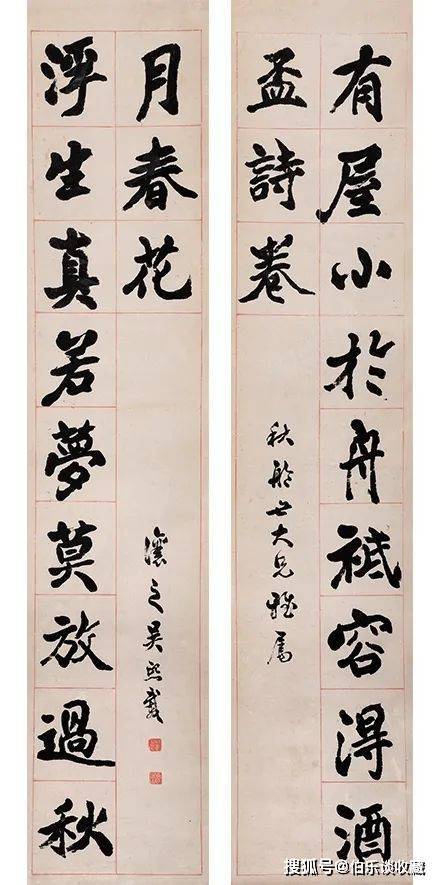 有屋小於舟祗容得酒
盃詩卷
秋舲世大兄雅屬
浮生真若夢莫放過秋
月春花
讓之吳熙載
搜狐号@伯乐谈收藏